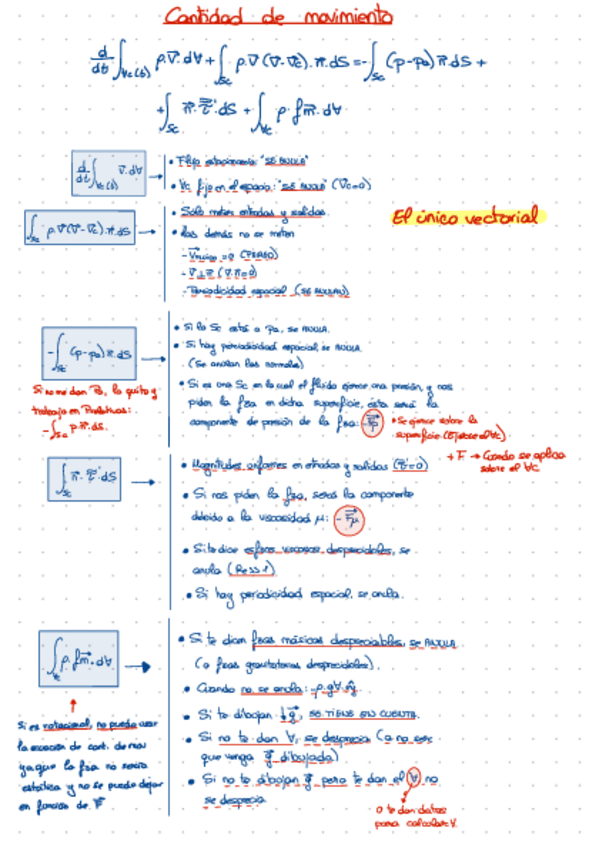 Cantidad de movimiento
d/dt ∫Vc(t) ρ.v⃗.dV + ∫Sc ρ.v⃗ (v⃗-v⃗c).n⃗.dS = -∫Sc (p-pa) n⃗.dS +
+ ∫Sc n⃗.τ̿'.dS + ∫Vc ρ.f⃗m.dV
d/dt ∫Vc(t) v⃗.dV →
• Flujo estacionario: "SE ANULA"
• Vc fijo en el espacio: "SE ANULA" (v⃗c=0)
∫Sc ρ.v⃗(v⃗-v⃗c).n⃗.dS →
• Sólo meter entradas y salidas.
El único vectorial
• Las demás no se meten
=0 (PARED)
- v⃗⊥n⃗ (v⃗.n⃗=0)
- Periodicidad espacial (SE ANULAN)
-∫Sc (p-pa) n⃗.dS →
• Si la Sc está a Pa, se ANULA.
• Si hay periodicidad espacial, se ANULA.
(Se anulan las normales)
• Si es una Sc en la cual el fluido ejerce una presión, y nos
piden la fza en dicha superficie, ésta será la
componente de presión de la fza: -F⃗p
Si no me dan Pa, lo quito y
trabajo en Presiones:
-∫Sc p.n⃗.dS.
• Se ejerce sobre la
superficie
+ F → Cuando se aplica
sobre el Vc
∫Sc n⃗.τ̿'.dS →
• Magnitudes uniformes en entradas y salidas (τ̿=0)
• Si nos piden la fza, será la componente
debido a la viscosidad μ: -F⃗μ
• Si te dice esfzos viscosos despreciables, se
anula (Re>>1)
• Si hay periodicidad espacial, se anula.
∫Vc ρ.f⃗m.dV →
• Si te dicen fzas másicas despreciables, se ANULA
(o fzas gravitatorias despreciables).
• Cuando no se anula: -ρ.g.V.
• Si te dibujan ↓g⃗, SE TIENE EN CUENTA.
• Si no te dan V, se desprecia (a no ser
que venga g⃗ dibujada)
• Si no te dibujan g⃗ pero te dan el V no
se desprecia
Si es rotacional, no puedo usar
la ecuación de cant. de mov
ya que la fza no sería
estática y no se puede dejar
en función de
O te dan datos
para calcular V.